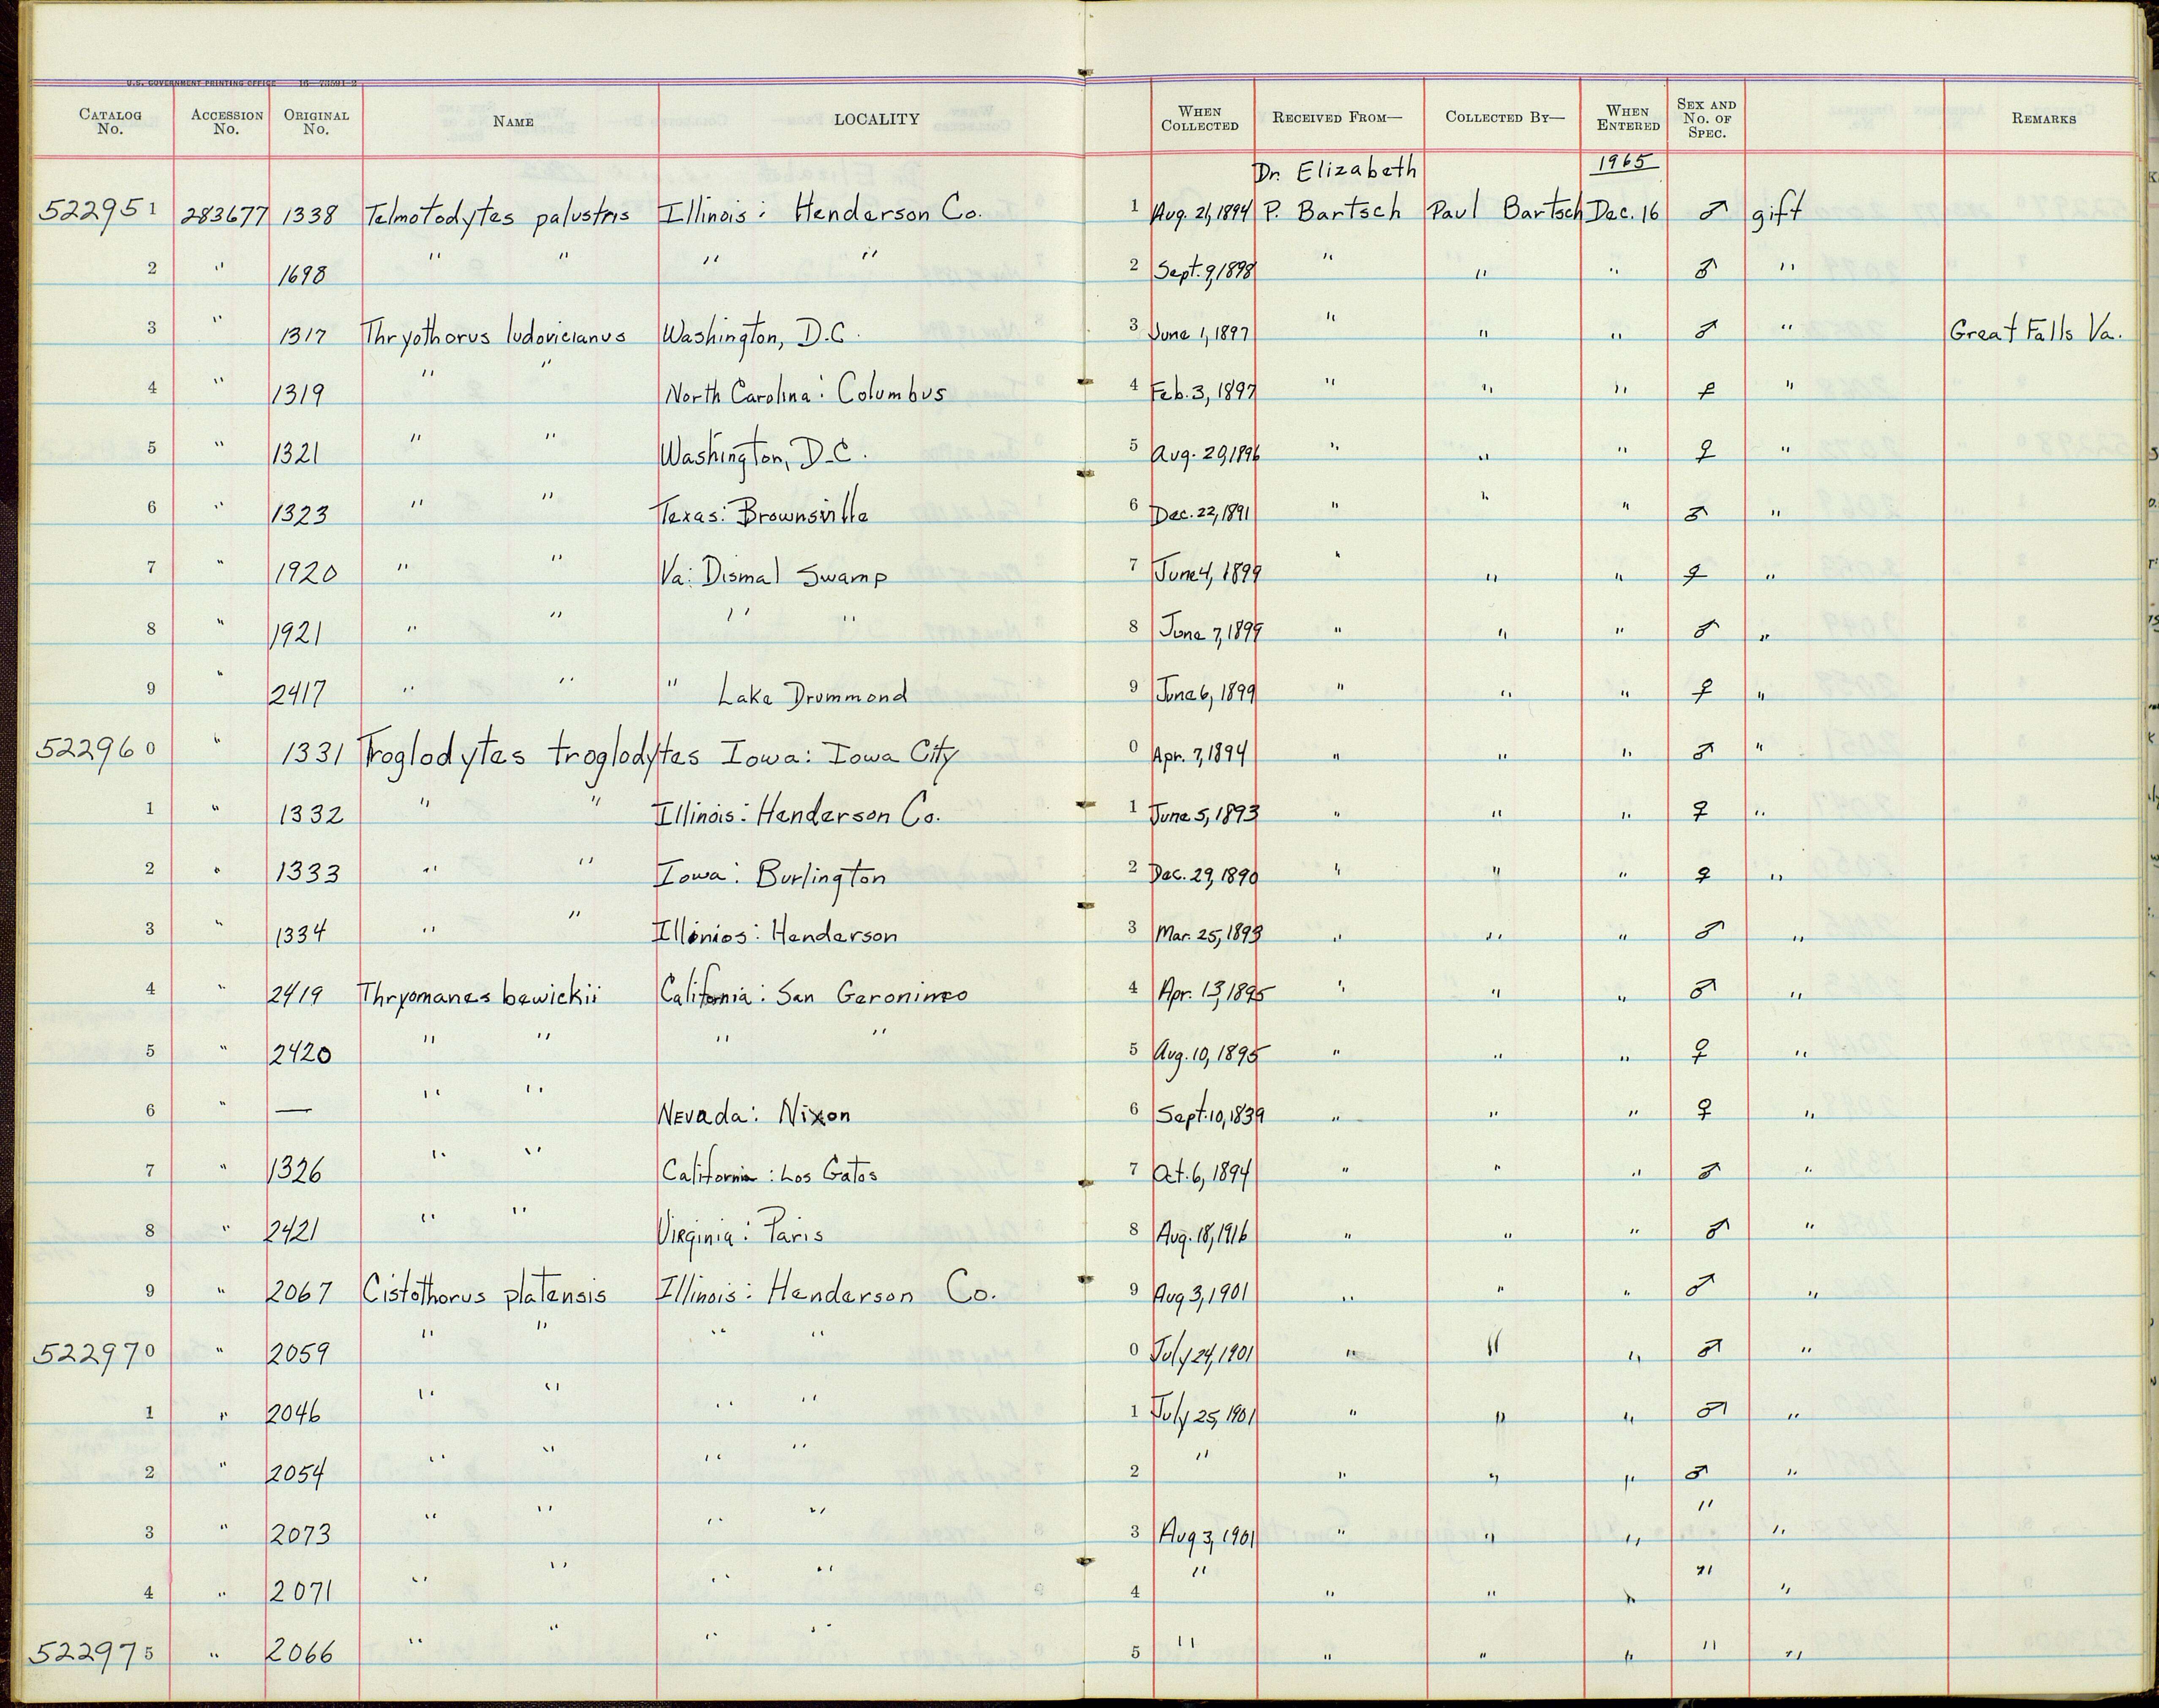 U.S. GOVERNMENT PRINTING OFFICE
CATALOG No. ACCESSION No. ORIGINAL No. NAME LOCALITY WHEN COLLECTED RECEIVED FROM— COLLECTED BY— WHEN ENTERED SEX AND No. OF SPEC. REMARKS
Dr. Elizabeth 1965
522951 283677 1338 Telmotodytes palustris Illinois: Henderson Co. 1 Aug. 21, 1894 P. Bartsch Paul Bartsch Dec. 16 ♂ gift
2 " 1698 " " " " 2 Sept. 9, 1898 " " " ♂ "
3 " 1317 Thryothorus ludovicianus Washington, D.C. 3 June 1, 1897 " " " ♂ " Great Falls Va.
4 " 1319 " " North Carolina: Columbus 4 Feb. 3, 1897 " " " ♀ "
5 " 1321 " " Washington, D.C. 5 Aug. 29, 1896 " " " ♀ "
6 " 1323 " " Texas: Brownsville 6 Dec. 22, 1891 " " " ♂ "
7 " 1920 " " Va: Dismal Swamp 7 June 4, 1899 " " " ♀ "
8 " 1921 " " " " 8 June 7, 1899 " " " ♂ "
9 " 2417 " " " Lake Drummond 9 June 6, 1899 " " " ♀ "
522960 " 1331 Troglodytes troglodytes Iowa: Iowa City 0 Apr. 7, 1894 " " " ♂ "
1 " 1332 " " Illinois: Henderson Co. 1 June 5, 1893 " " " ♀ "
2 " 1333 " " Iowa: Burlington 2 Dec. 29, 1890 " " " ♀ "
3 " 1334 " " Illinios: Henderson 3 Mar. 25, 1893 " " " ♂ "
4 " 2419 Thryomanes bewickii California: San Geronimo 4 Apr. 13, 1895 " " " ♂ "
5 " 2420 " " " " 5 Aug. 10, 1895 " " " ♀ "
6 " — " " Nevada: Nixon 6 Sept. 10, 1839 " " " ♀ "
7 " 1326 " " California: Los Gatos 7 Oct. 6, 1894 " " " ♂ "
8 " 2421 " " Virginia: Paris 8 Aug. 18, 1916 " " " ♂ "
9 " 2067 Cistothorus platensis Illinois: Henderson Co. 9 Aug 3, 1901 " " " ♂ "
522970 " 2059 " " " " 0 July 24, 1901 " " " ♂ "
1 " 2046 " " " " 1 July 25, 1901 " " " ♂ "
2 " 2054 " " " " 2 " " " " ♂ "
3 " 2073 " " " " 3 Aug 3, 1901 " " " " "
4 " 2071 " " " " 4 " " " " " "
522975 " 2066 " " " " 5 " " " " " "